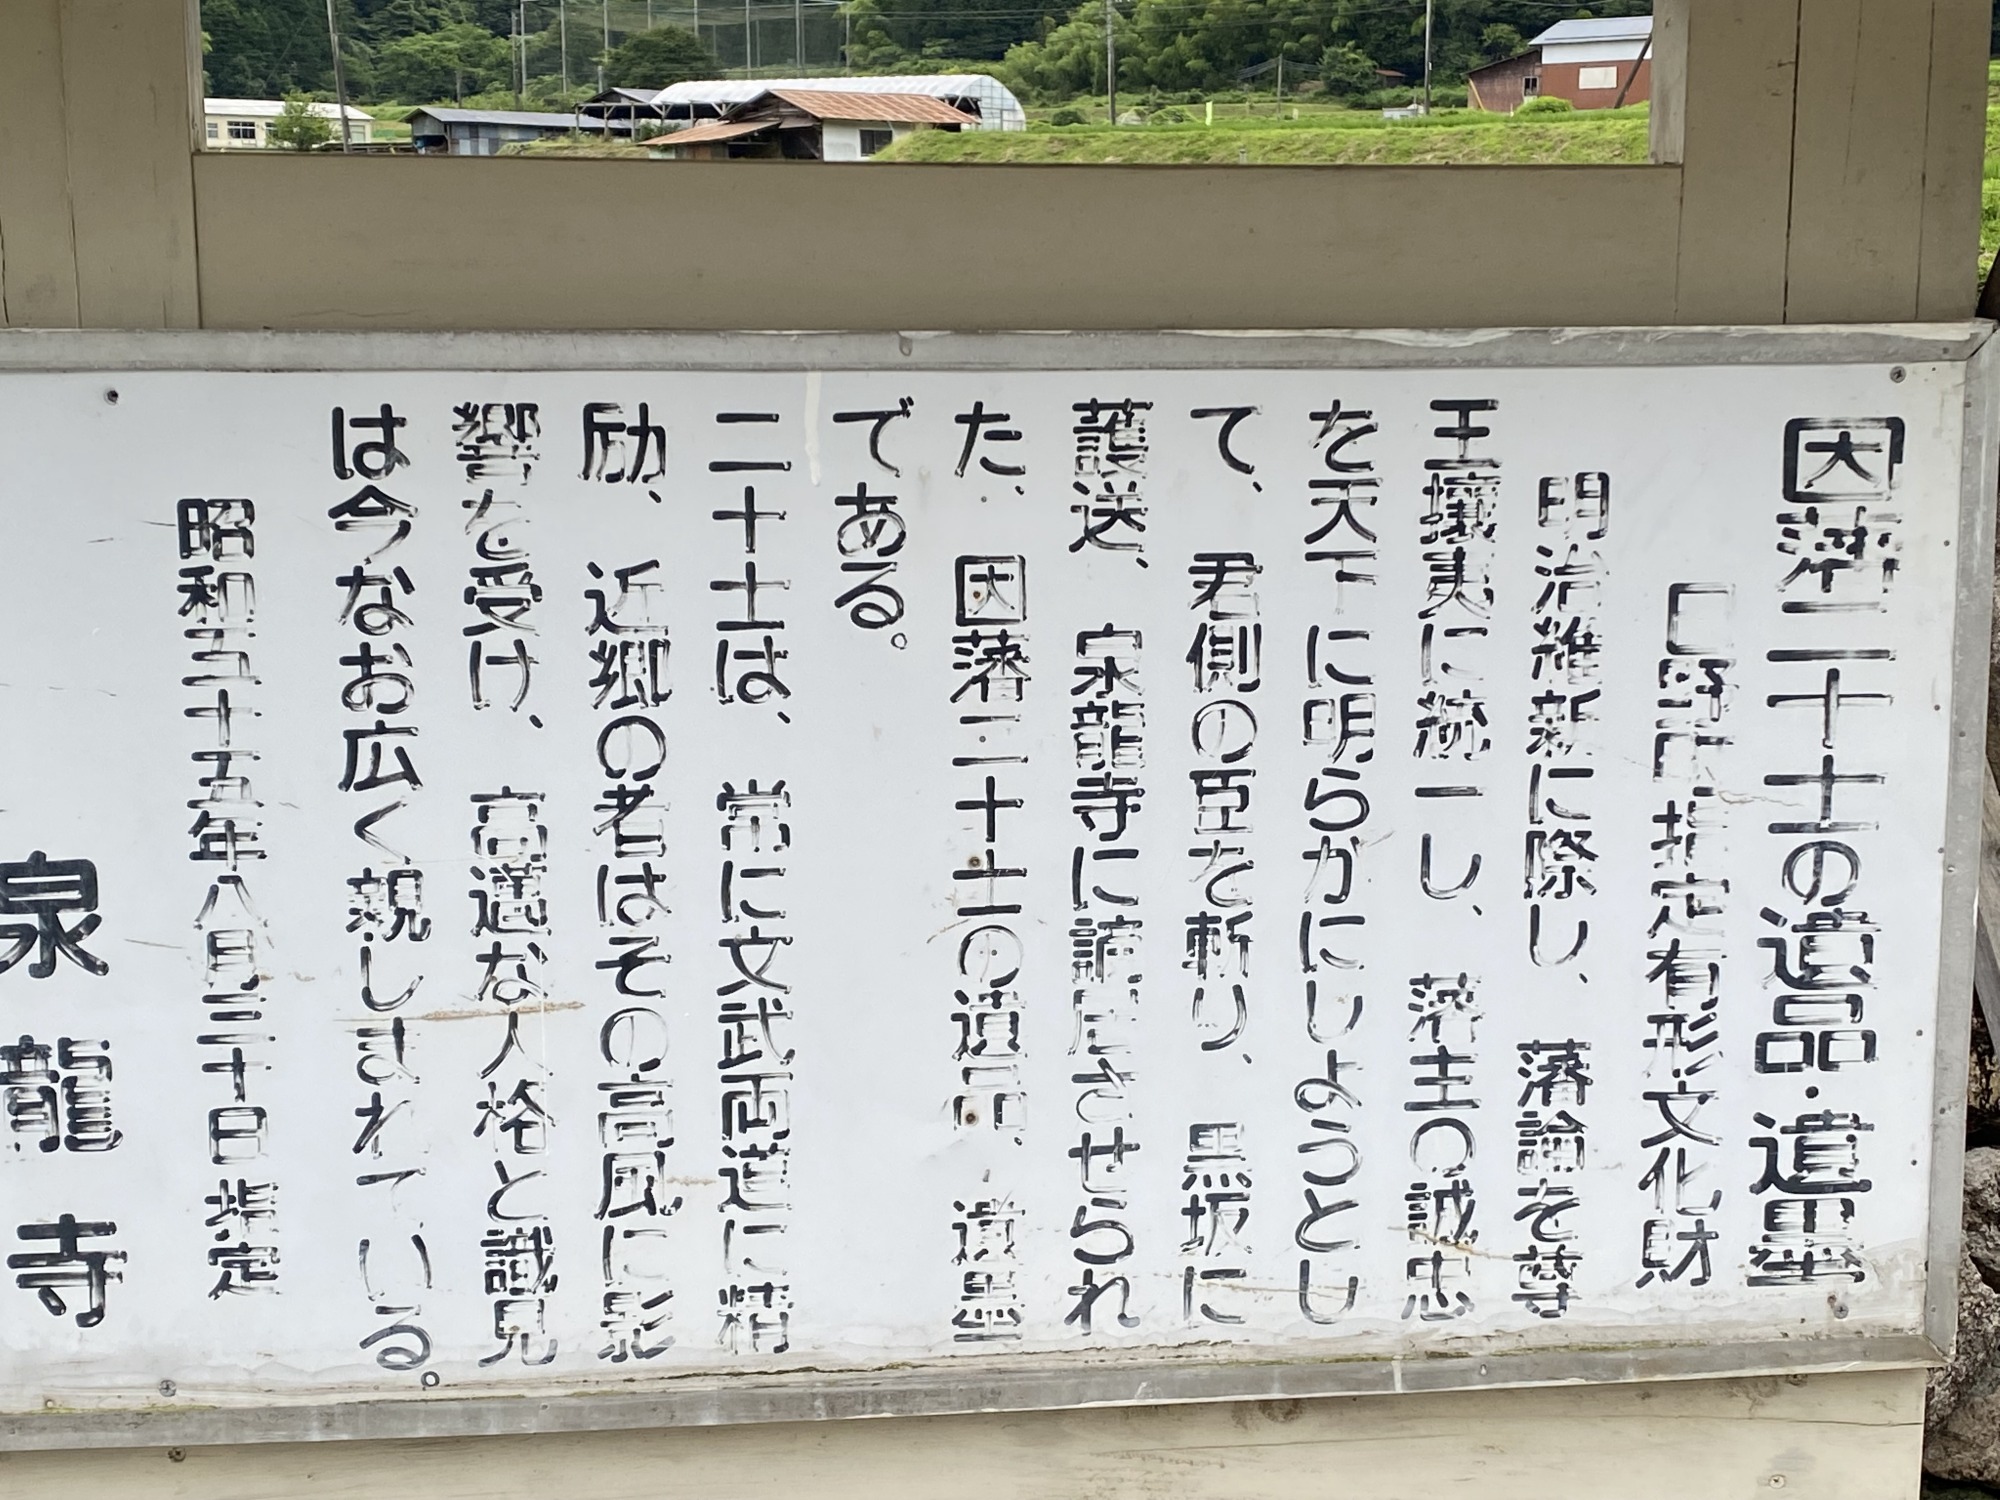 因藩二十士の遺品・遺墨
日野町指定有形文化財
明治維新に際し、藩論を尊
王壌夷に統一し、藩主の誠忠
を天下に明らかにしようとし
て、君側の臣を斬り、黒坂に
護送、泉龍寺に謫居させられ
た、因藩二十士の遺品、遺墨
である。
二十士は、常に文武両道に精
励、近郷の者はその高風に影
響を受け、高邁な人格と識見
は今なお広く親しまれている。
昭和五十五年八月三十日指定
泉龍寺